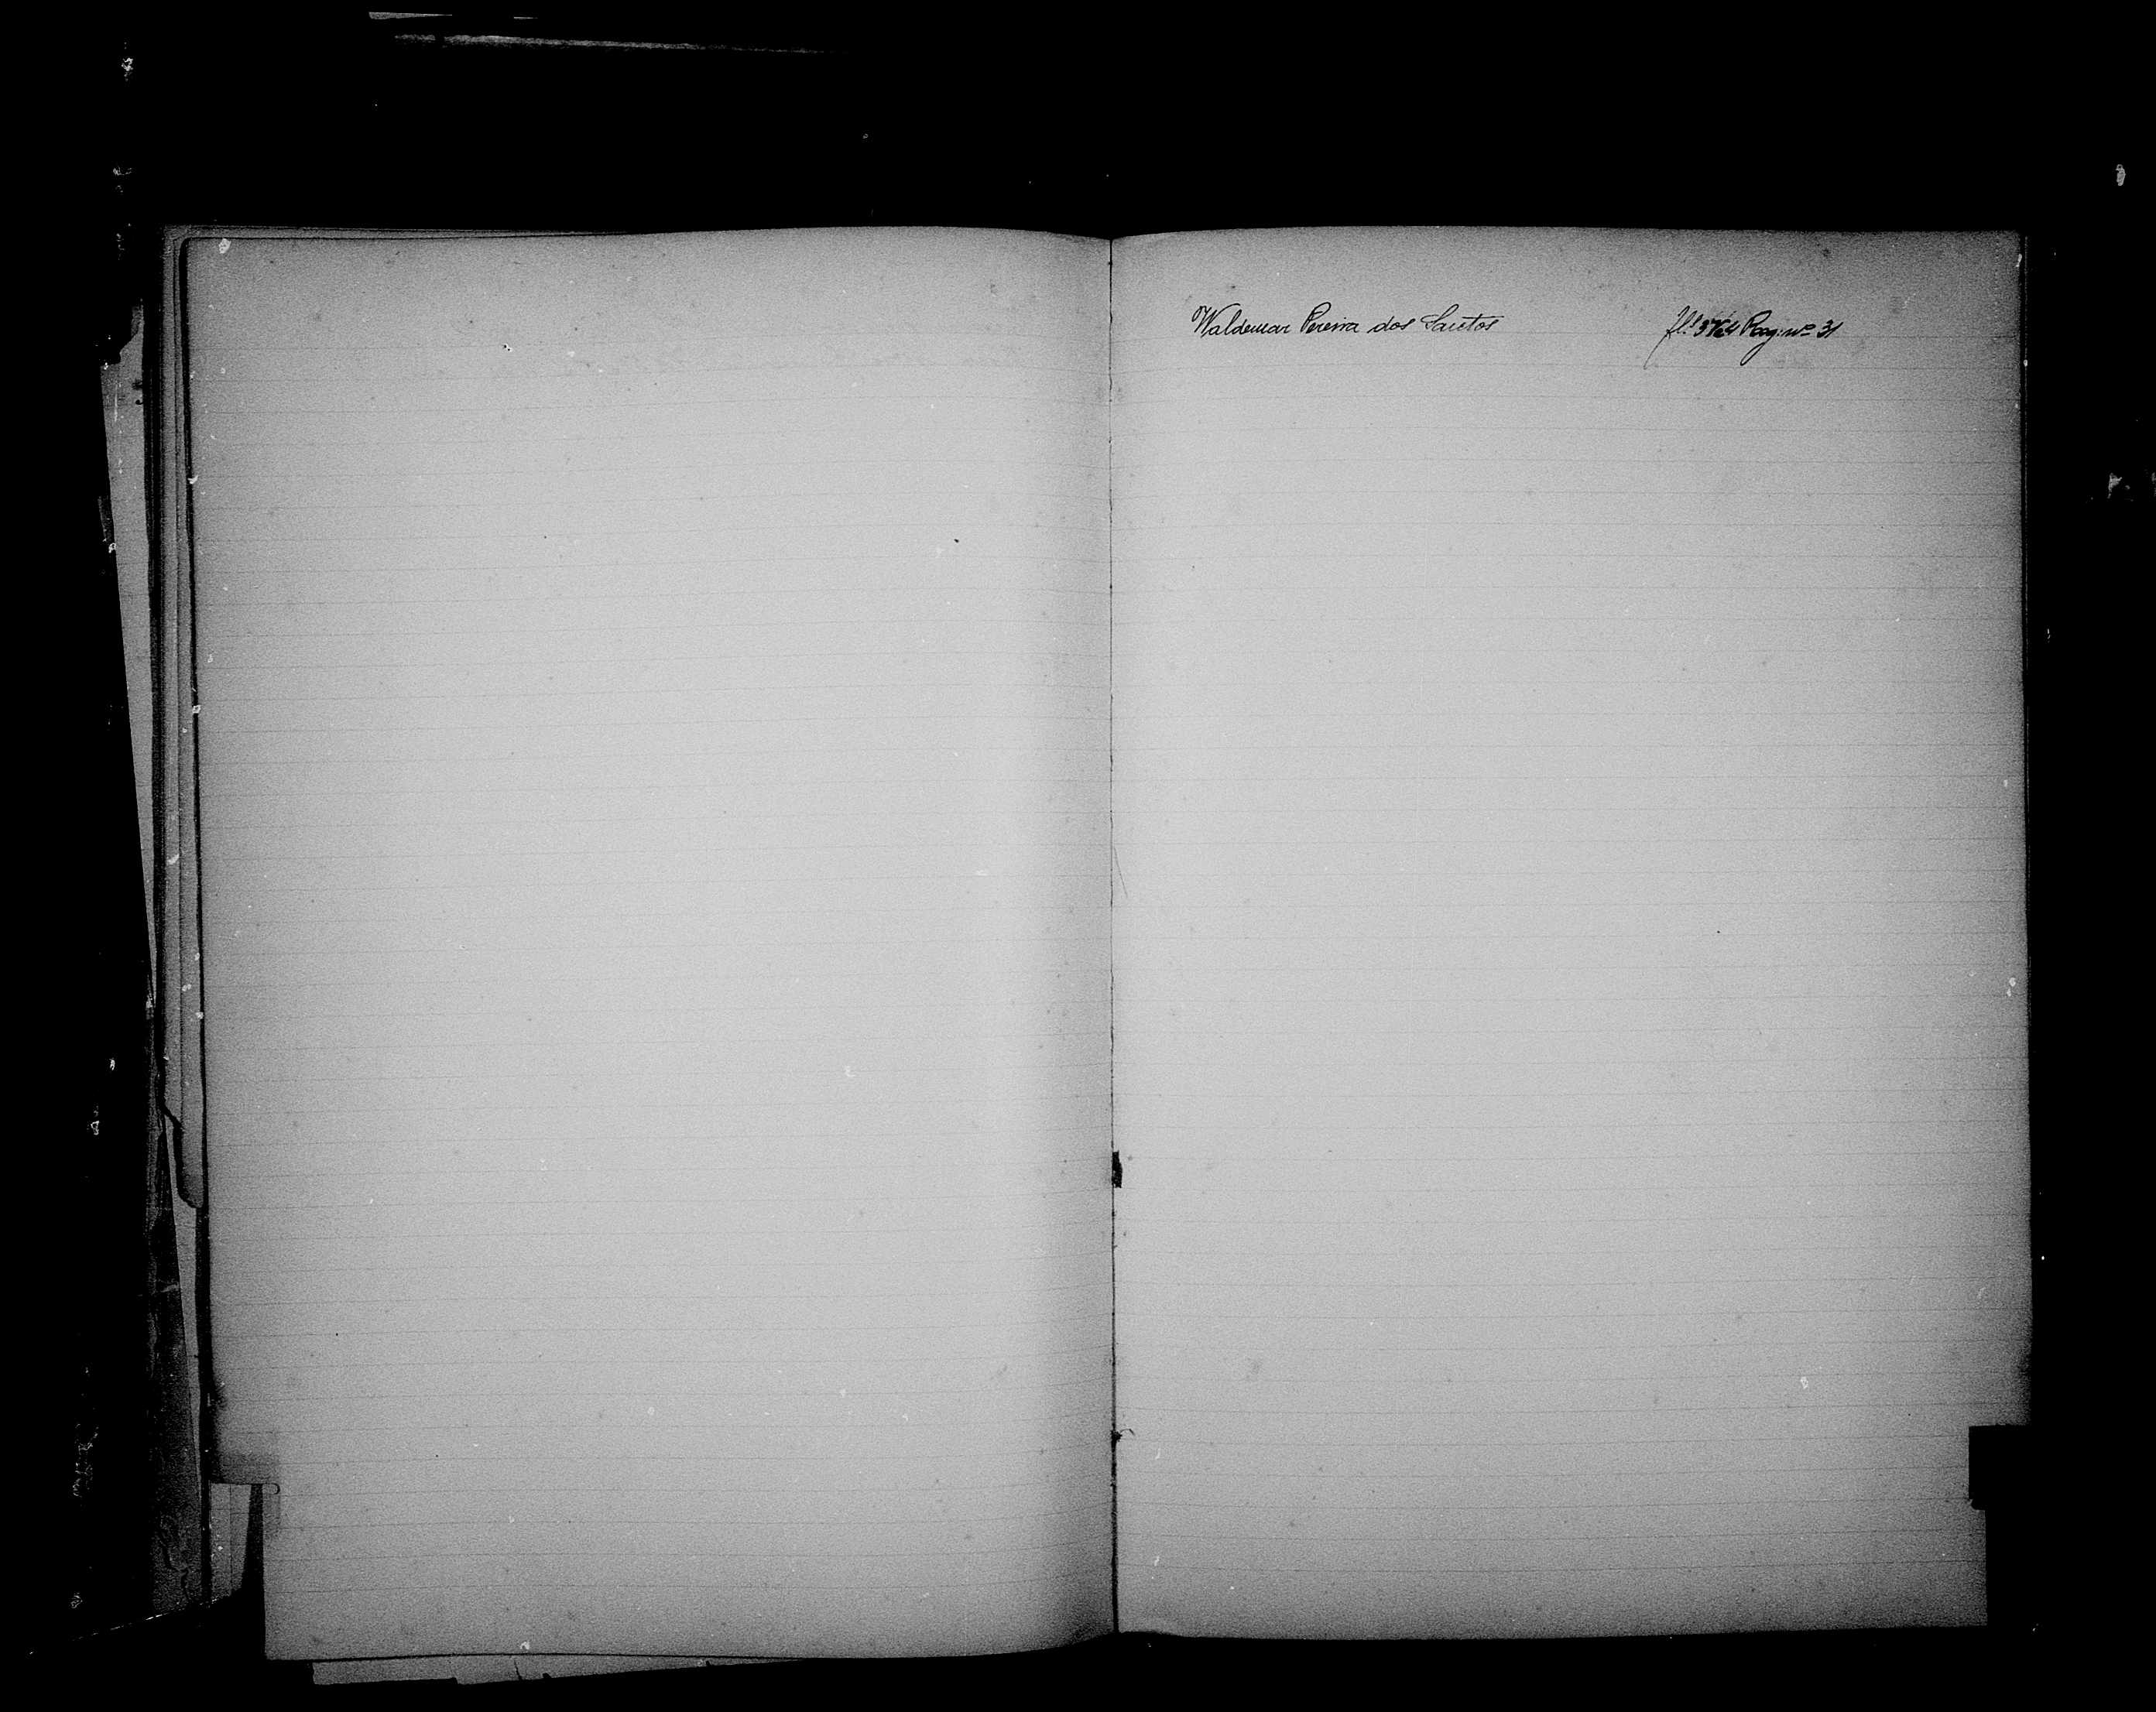 Waldemar Pereira dos Santos fls 3 Vº Reg: nº 31